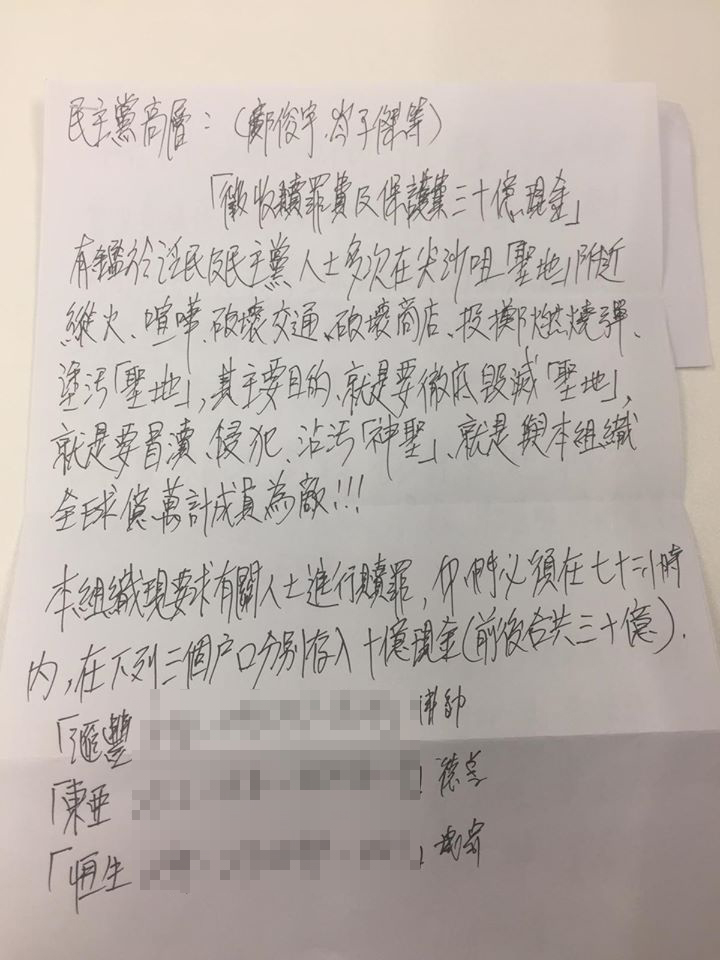 民主黨高層：（鄺俊宇、岑子傑等）
「徵收贖罪費及保護費三十億現金」
有鑑於泛民及民主黨人士多次在尖沙咀「聖地」附近
縱火、喧嘩、破壞交通、破壞商店、投擲燃燒彈、
塗污「聖地」，其主要目的、就是要徹底毀滅「聖地」，
就是要冒瀆、侵犯、沾污「神聖」、就是與本組織
全球億萬計成員為敵!!!
本組織現要求有關人士進行贖罪，你們必須在七十二小時
內，在下列三個户口分別存入十億現金(前後合共三十億).
「滙豐
「東亞
「恒生 」